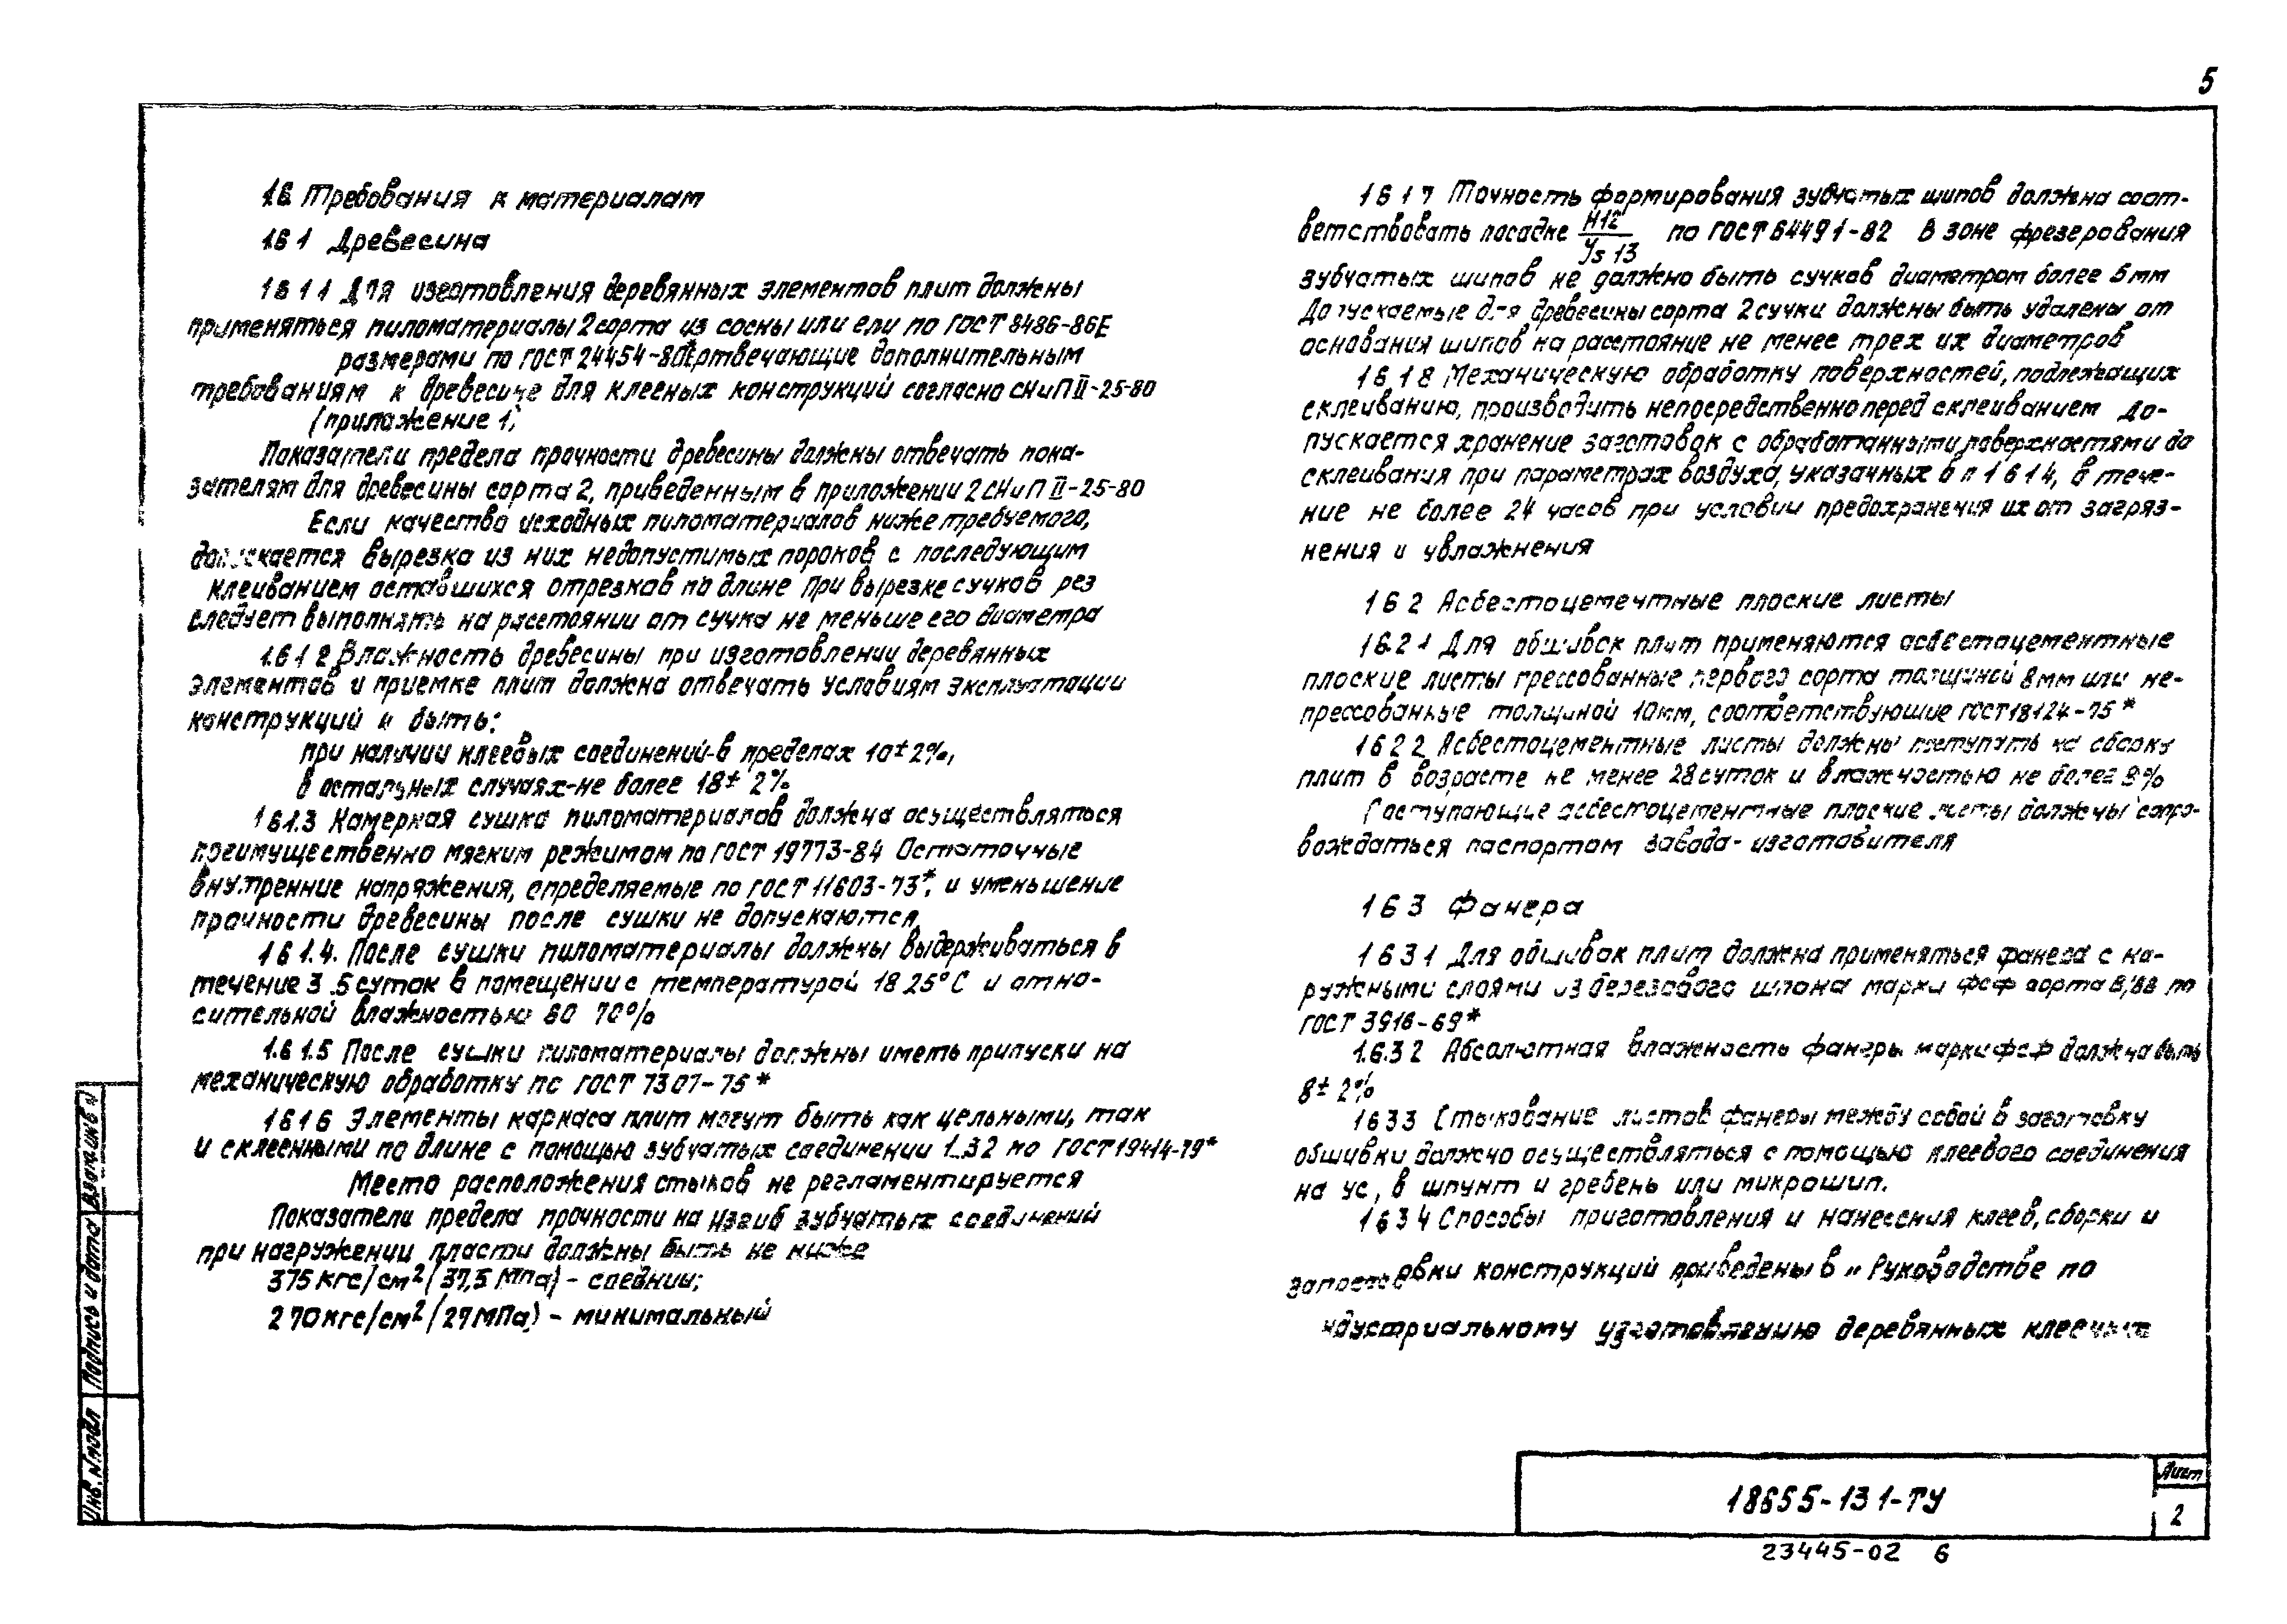 5
1.6. Требования к материалам
1.6 1 Древесина
1 6 1 1 Для изготовления деревянных элементов плит должны
применяться пиломатериалы 2 сорта из сосны или ели по ГОСТ 8486-86Е
размерами по ГОСТ 24454-80Е, отвечающие дополнительным
требованиям к древесине для клееных конструкций согласно СНиП II-25-80
(приложение 1)
Показатели предела прочности древесины должны отвечать пока-
зателям для древесины сорта 2, приведенным в приложении 2 СНиП II-25-80
Если качество исходных пиломатериалов ниже требуемого,
допускается вырезка из них недопустимых пороков с последующим
клеиванием оставшихся отрезков по длине При вырезке сучков рез
следует выполнять на расстоянии от сучка не меньше его диаметра
1.6 1 2 Влажность древесины при изготовлении деревянных
элементов и приемке плит должна отвечать условиям эксплуатации
конструкций и быть:
при наличии клеевых соединений-в пределах 10±2%,
в остальных случаях-не более 18± 2%
1 6 1.3 Камерная сушка пиломатериалов должна осуществляться
преимущественно мягким режимом по ГОСТ 19773-84 Остаточные
внутренние напряжения, определяемые по ГОСТ 11603-73*, и уменьшение
прочности древесины после сушки не допускаются.
1 6 1.4. После сушки пиломатериалы должны выдерживаться в
течение 3 .5 суток в помещении с температурой 18 25°С и отно-
сительной влажностью 60 70%
1.6 1.5 После сушки пиломатериалы должны иметь припуски на
механическую обработку по ГОСТ 7307-75*
1 6 1 6 Элементы каркаса плит могут быть как цельными, так
и склеенными по длине с помощью зубчатых соединении 1_32 по ГОСТ 19414-79*
Место расположения стыков не регламентируется
Показатели предела прочности на изгиб зубчатых соединений
при нагружении пласти должны быть не ниже
375 кгс/см² (37,5 МПа) - средний;
270 кгс/см² (27 МПа) - минимальный
1 6 1 7 Точность формирования зубчатых шипов должна соот-
ветствовать посадке H12/Js 13 по ГОСТ 6449 1-82 В зоне фрезерования
зубчатых шипов не должно быть сучков диаметром более 5 мм
Допускаемые для древесины сорта 2 сучки должны быть удалены от
основания шипов на расстояние не менее трех их диаметров
1 6 1 8 Механическую обработку поверхностей, подлежащих
склеиванию, производить непосредственно перед склеиванием До-
пускается хранение заготовок с обработанными поверхностями до
склеивания при параметрах воздуха, указанных в п 1 6 1 4, в тече-
ние не более 24 часов при условии предохранения их от загряз-
нения и увлажнения
1 6 2 Асбестоцементные плоские листы
1 6.2 1 Для обшивок плит применяются асбестоцементные
плоские листы прессованные первого сорта толщиной 8 мм или не-
прессованные толщиной 10 мм, соответствующие ГОСТ 18124-75*
1 6 2 2 Асбестоцементные листы должны поступать на сборку
плит в возрасте не менее 28 суток и влажностью не более 9%
Поступающие асбестоцементные плоские листы должны сопро-
вождаться паспортом завода-изготовителя
1 6 3 Фанера
1 6 3 1 Для обшивок плит должна применяться фанера с на-
ружными слоями из березового шпона марки ФСФ сорта В/ВВ по
ГОСТ 3916-69*
1.6.3 2 Абсолютная влажность фанеры марки ФСФ должна быть
8± 2%
1 6 3 3 Стыкование листов фанеры между собой в заготовку
обшивки должно осуществляться с помощью клеевого соединения
на ус, в шпунт и гребень или микрошип.
1 6 3 4 Способы приготовления и нанесения клеев, сборки и
запрессовки конструкций приведены в „Руководстве по
ндустриальному изготовлению деревянных клееных
Инв. № подл
Подпись и дата
Взам. инв №
18655-13 1-ТУ
Лист
2
23445-02 6